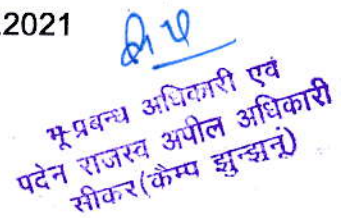 .2021
भू-प्रबन्ध अधिकारी एवं
पदेन राजस्व अपील अधिकारी
सीकर(कैम्प झुन्झुनूं)